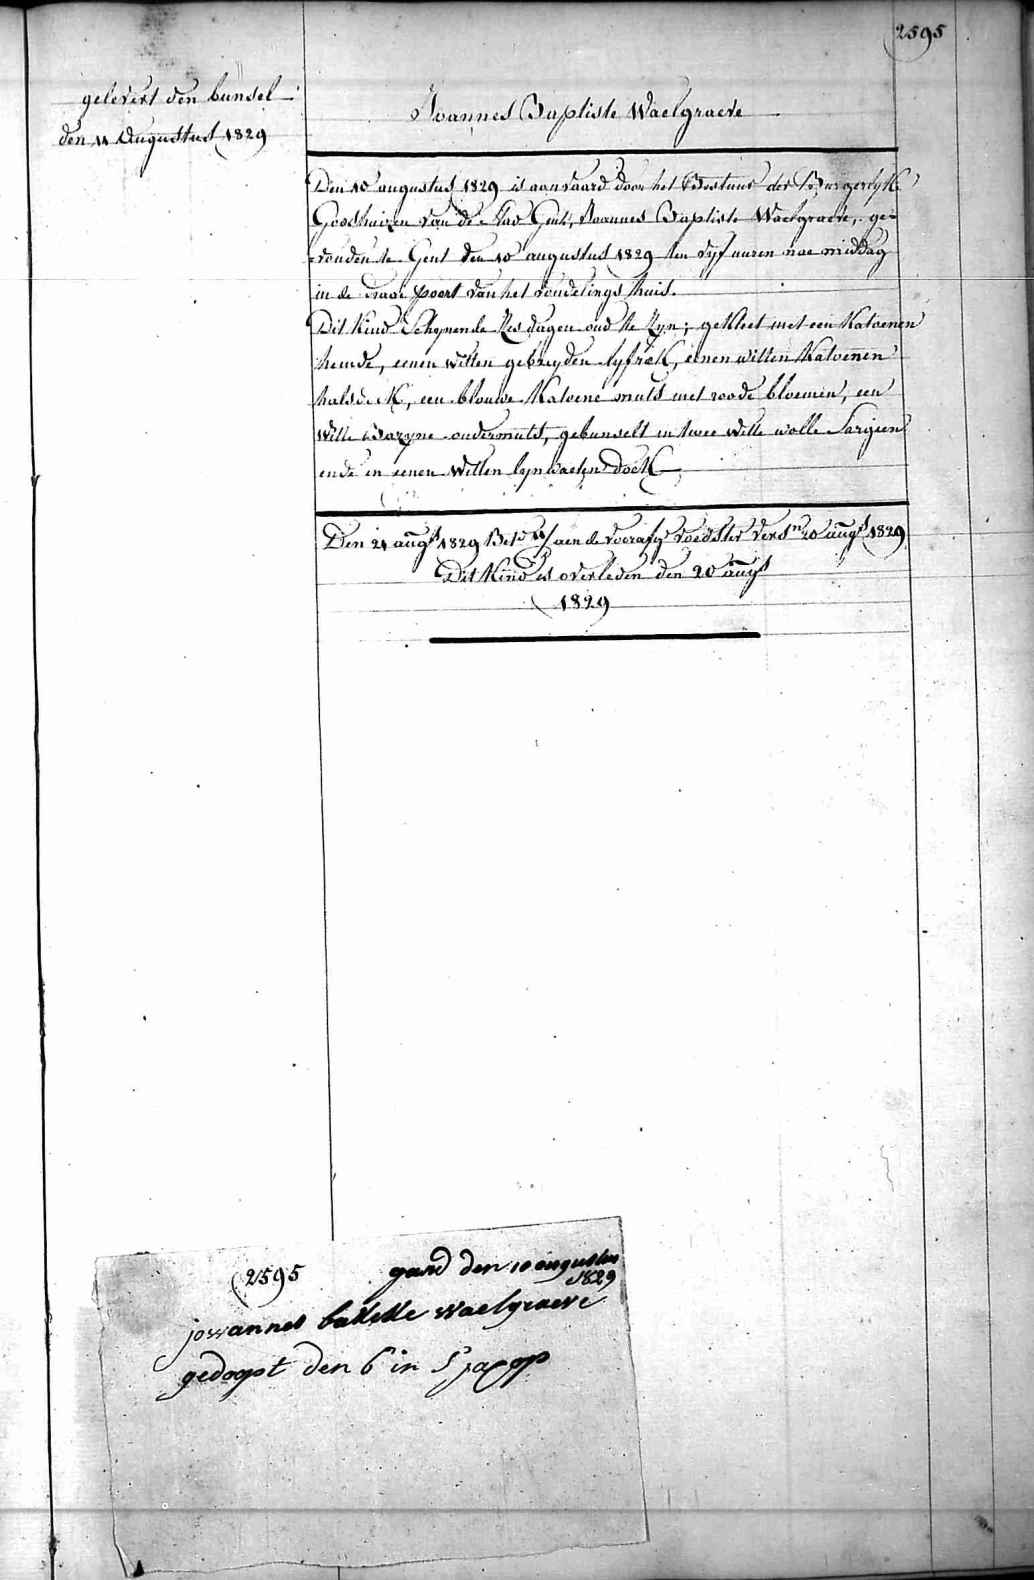 2595
gelevert den bunsel
den 11 Augustus 1829
Joannes Baptiste Waelgraeve
Den 10 augustus 1829 is aanvaard door het Bestuur der Burgerlyke
Godshuizen van de Stad Gent, Joannes Baptiste Waelgraeve, ge-
vonden te Gent den 10 augustus 1829 ten vyf uuren nae middag
in de poort van het vondelings huis.
Dit Kind Schynende Zes dagen oud te Zyn; gekleet met een Katoenen
hemde, eenen witten gebreyden lyfrok, eenen witten Katoenen
halsdoek, een blouwe Katoene muts met roode bloemen, een
Witte bazyne ondermuts, gebunselt in twee witte wolle Sargien
ende in eenen Witten lynwaeten Doek
Den 21 augs 1829 aen de voedster 20 augs 1829
Dit Kind is overleden den 20 augs
1829
2595 gand den 10 augustus
1829
jowannes battette waelgraeve
gedoopt den 6 in S jacop